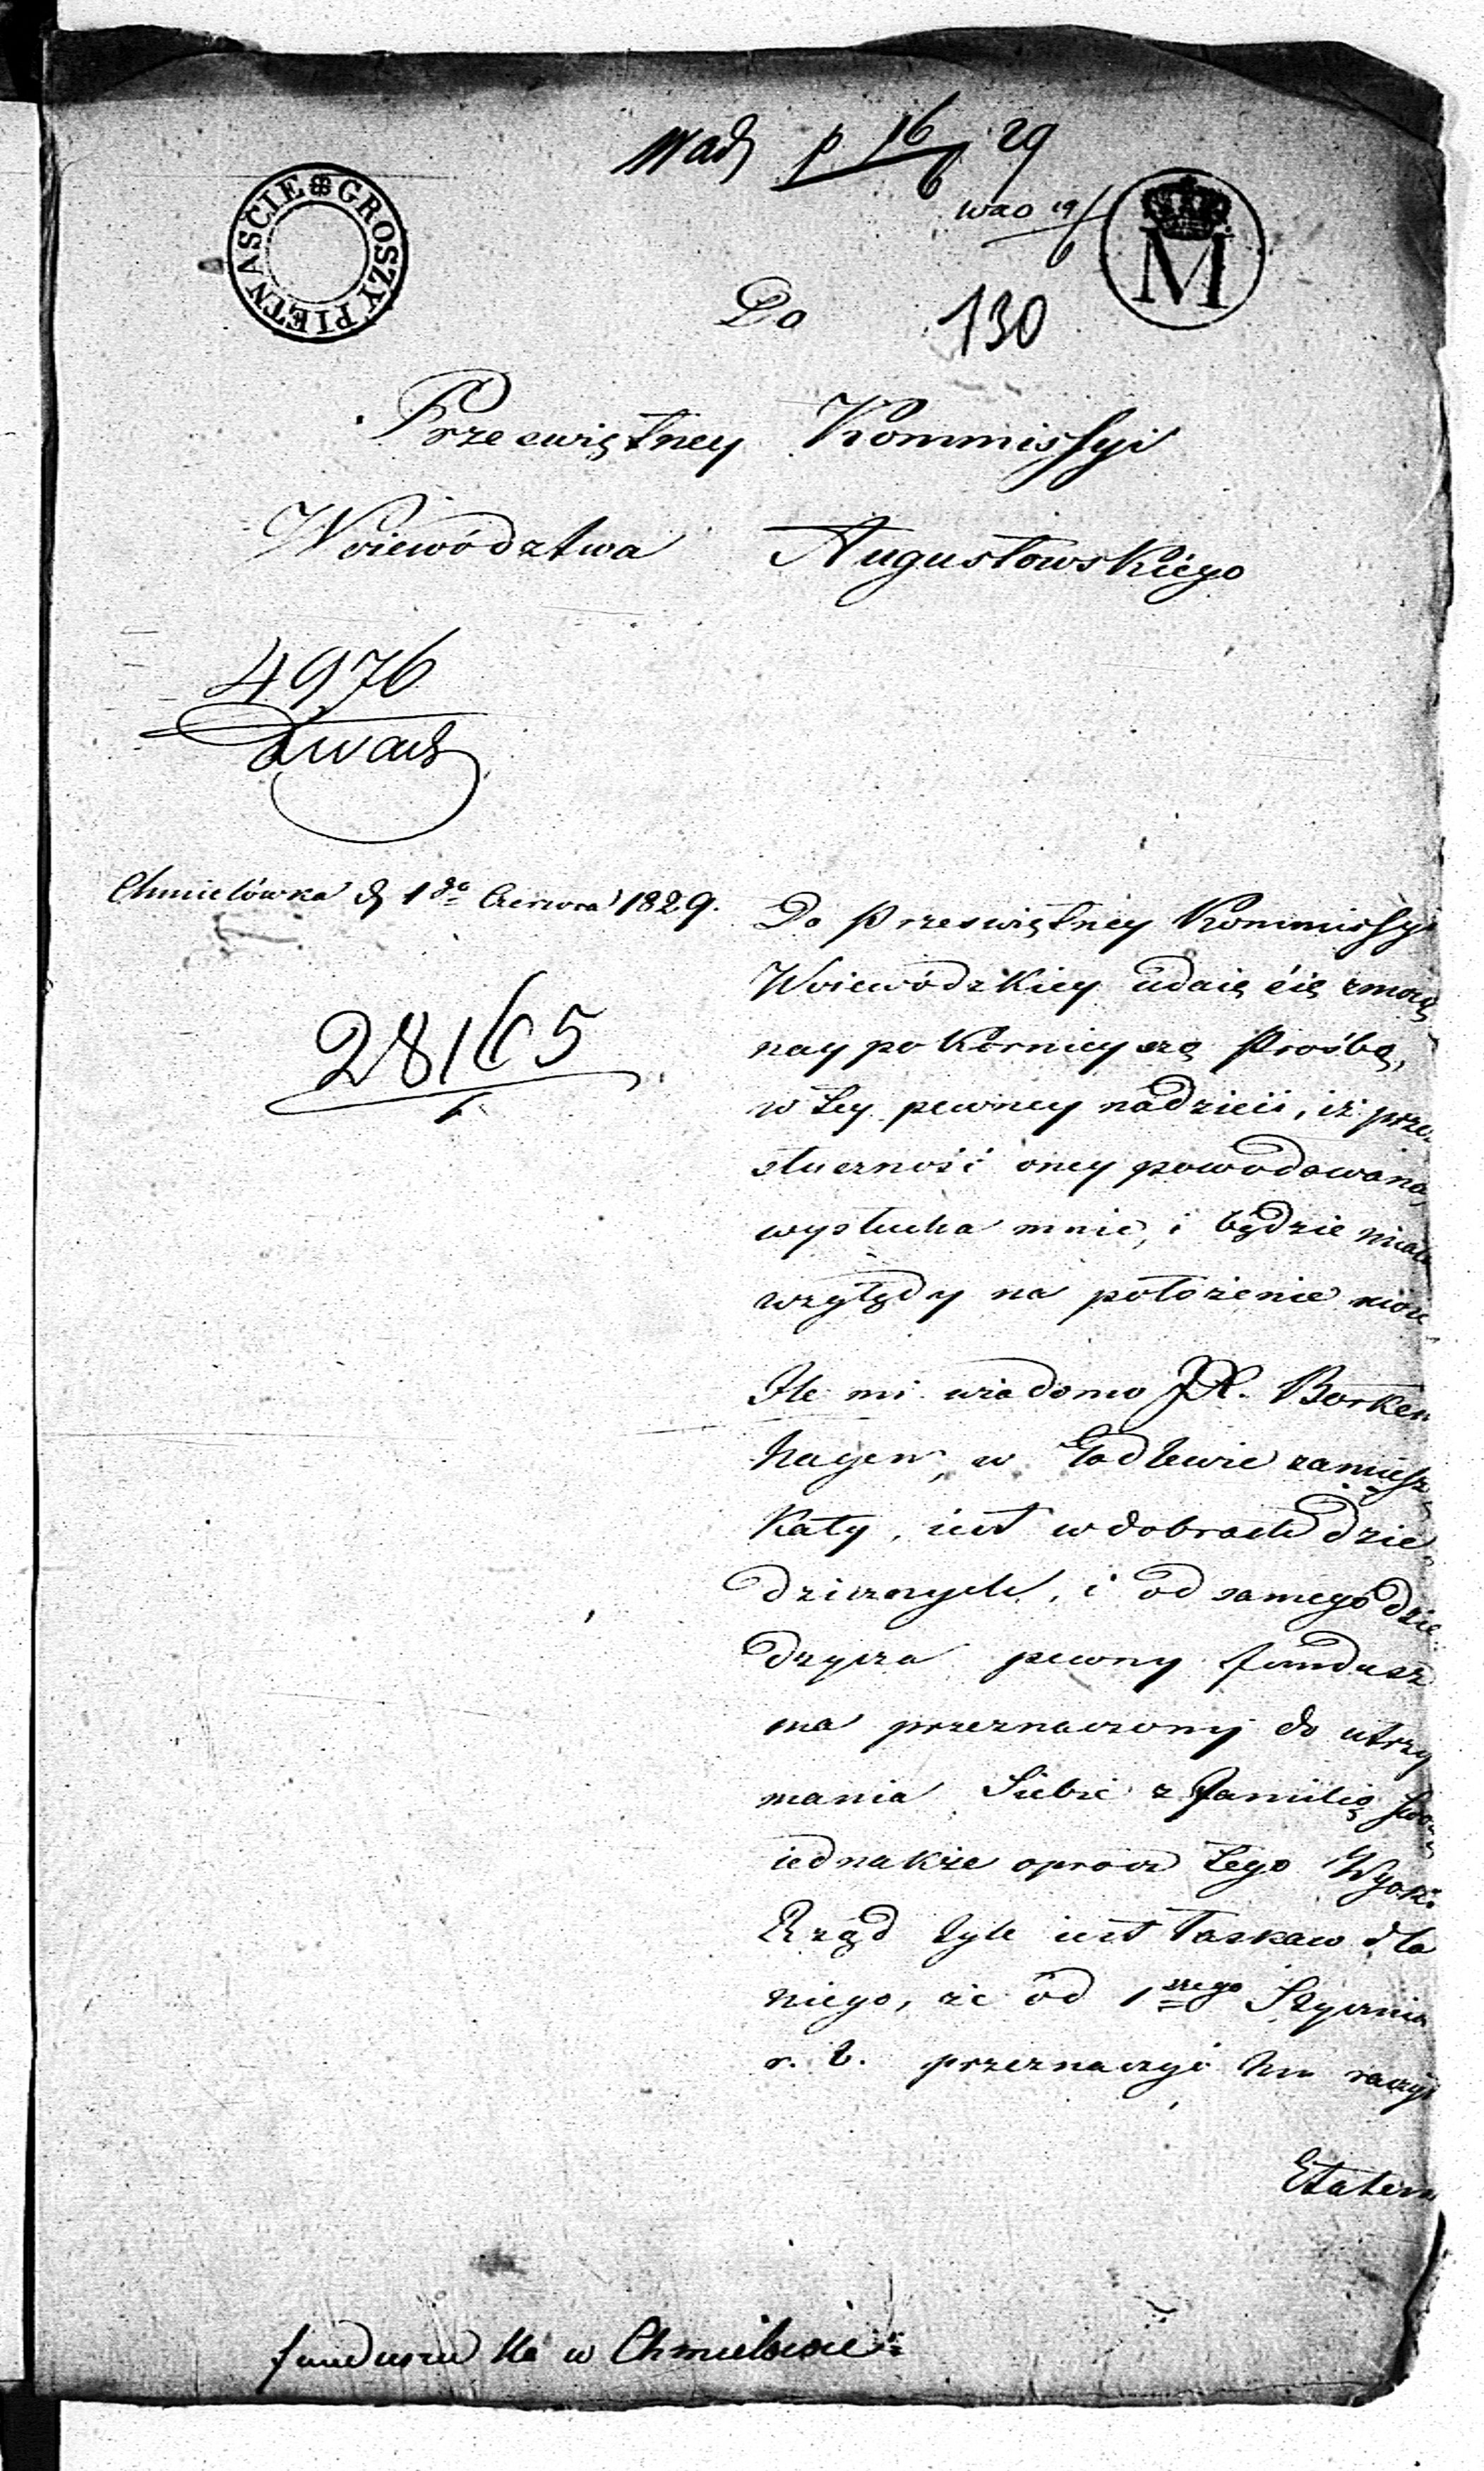 p 16/6 29
19/6
GROSZY PIĘTNAŚCIE
M
Do 130
Przeswiętney Kommissyi
Woiewództwa Augustowskiego
4976
Chmielówka d 1go Czerwca 1829.
28165
Do Przeswiętney Kommissyi
Woiewódzkiey udaię się zmoią
naypokornieyszą Prośbą,
w tey pewney nadzieii, iż przez
słuczność oney powodowana,
wysłucha mnie, i będzie miała
względy na położenie moie
Ile mi wiadomo JX. Borken
hagen, w Godlewie zamiesz
kały, iest w dobrach dzie
dzicznych, i od samego dzie
dzyca pewny fundusz
ma przeznaczony do utrzy
mania Siebie z Familią swo
iednakże oprocz tego Wyosz.
Rząd tyle iest łaskaw dla
niego, że od 1szego Stycznia
r. b. przeznaczyć mu raczył
Etatem
funduszu w Chmielowie